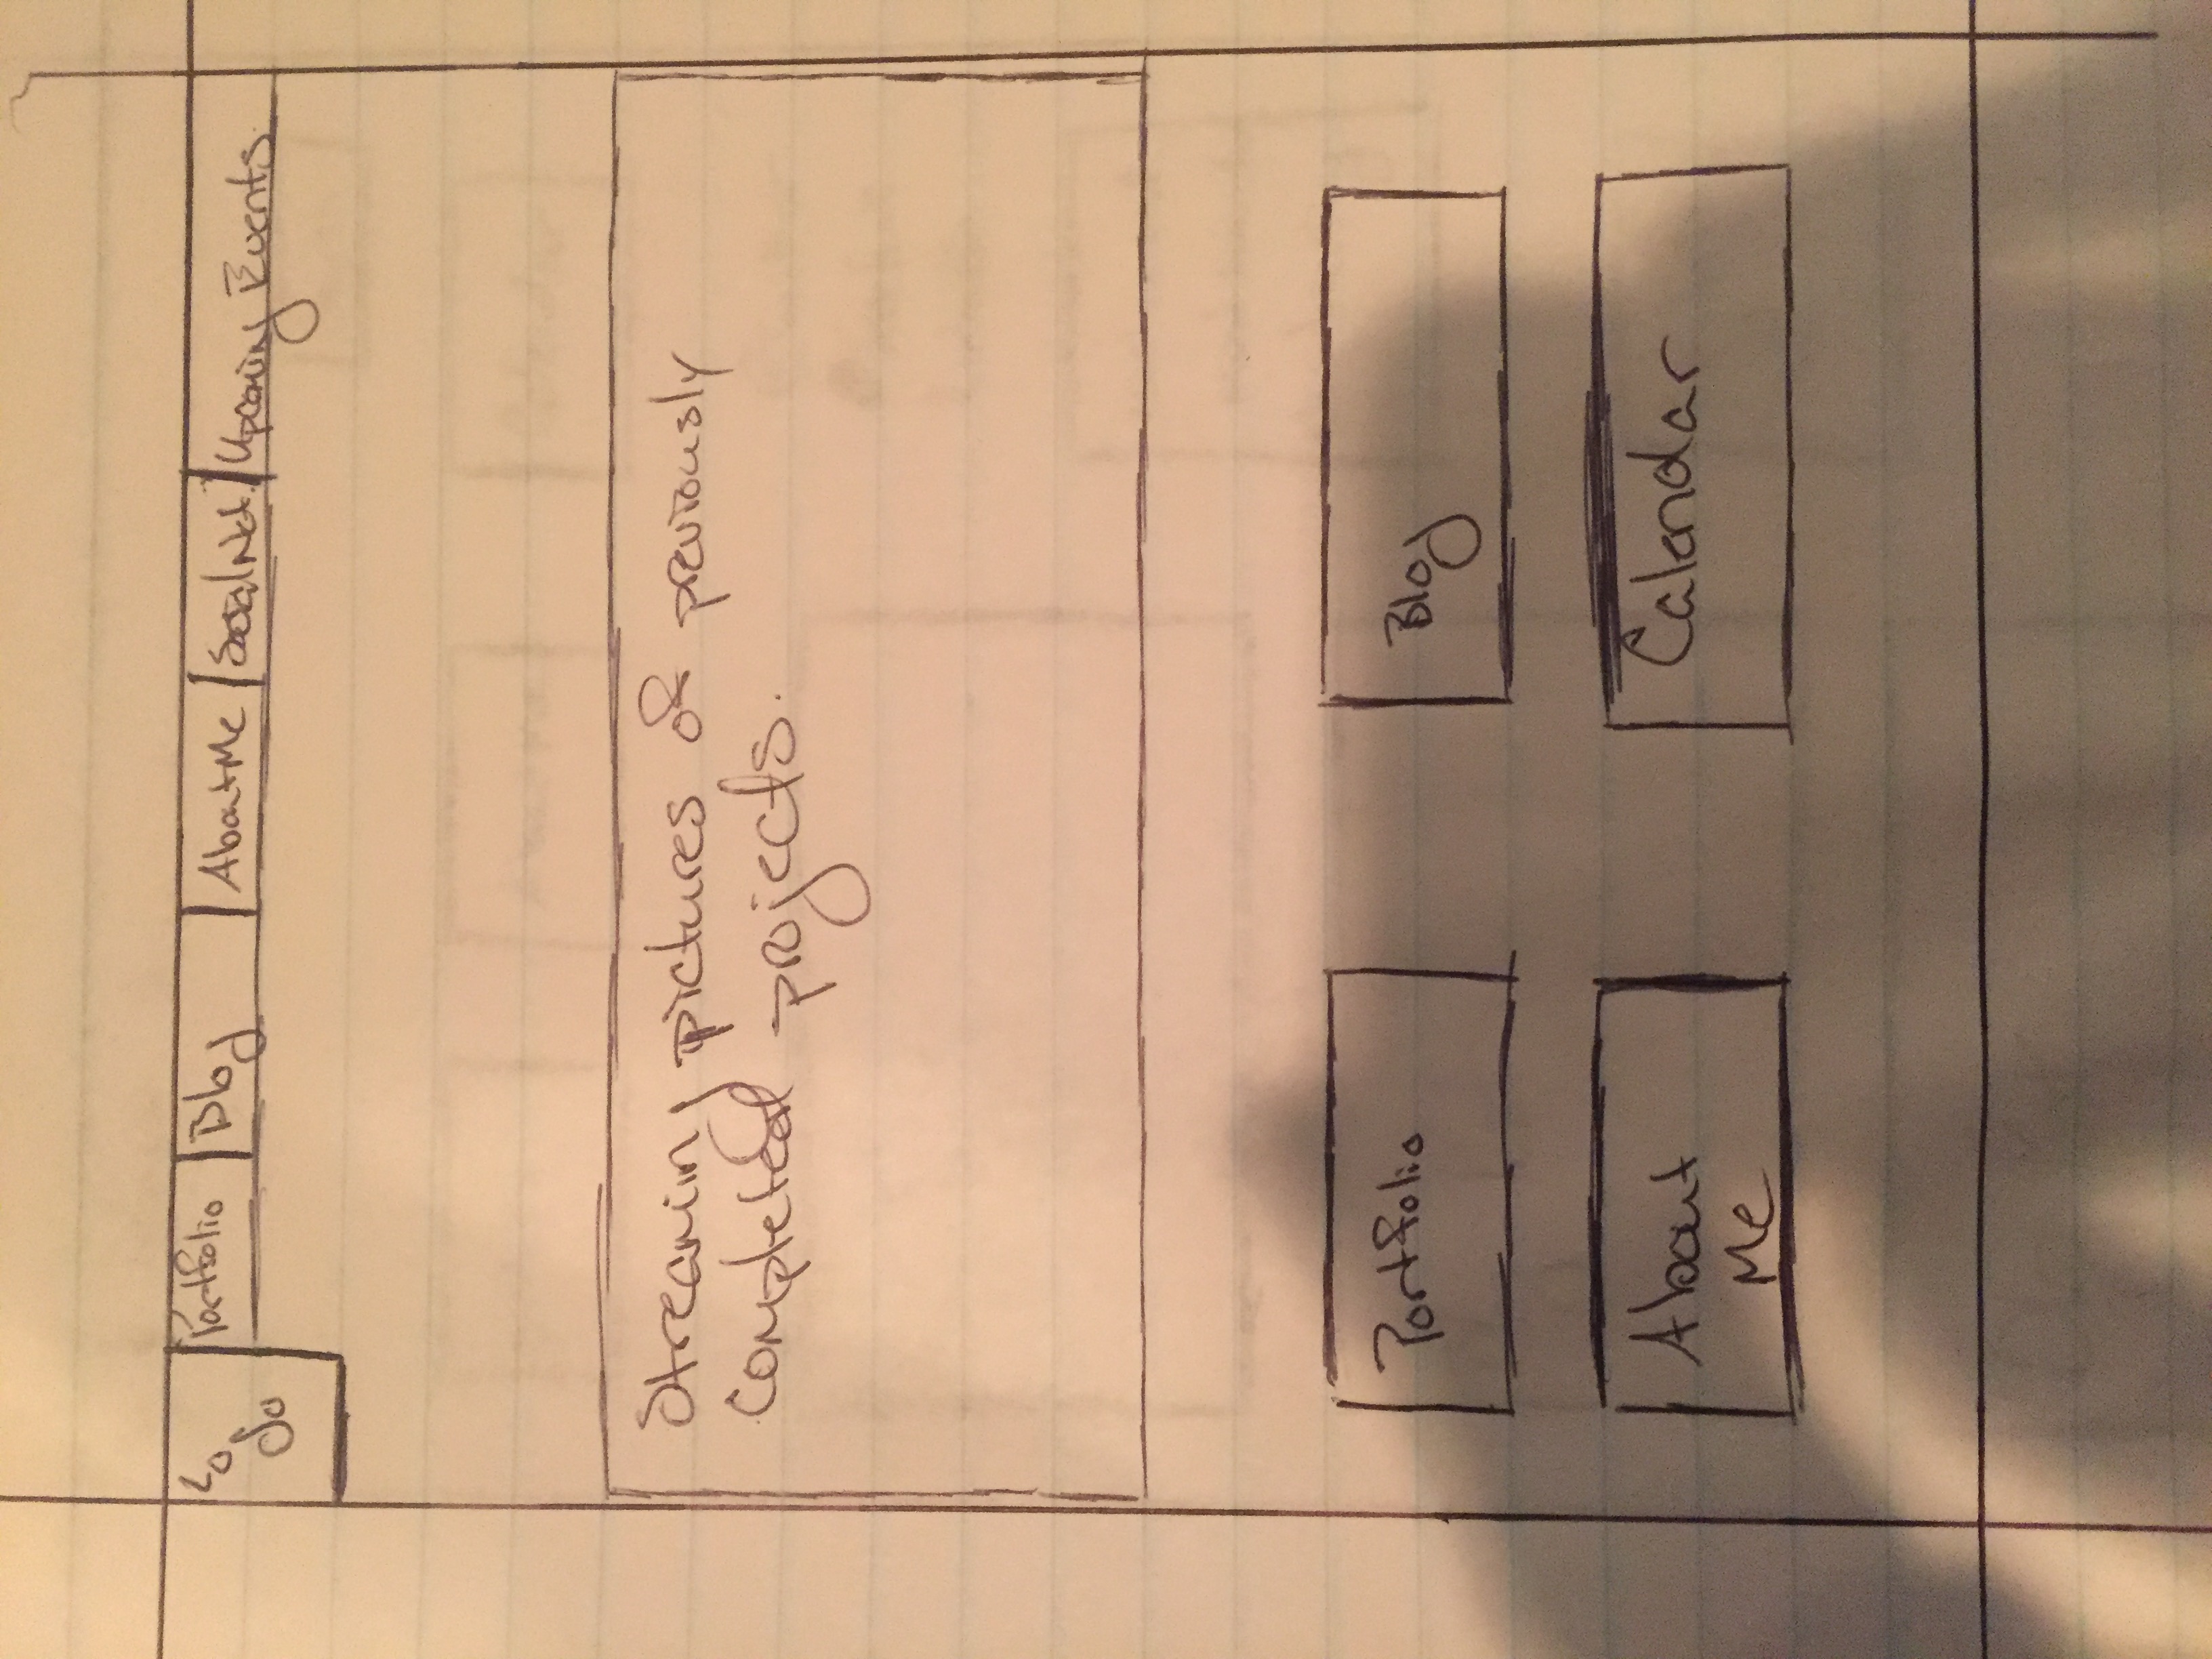 Logo
Portfolio
Blog
About Me
Social Net.
Upcoming Events
Streaming pictures of previously
completed projects.
Portfolio
Blog
About
Me
Calendar